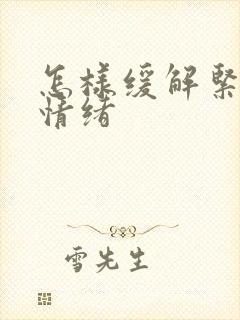 怎樣缓解緊
情绪
雪先生